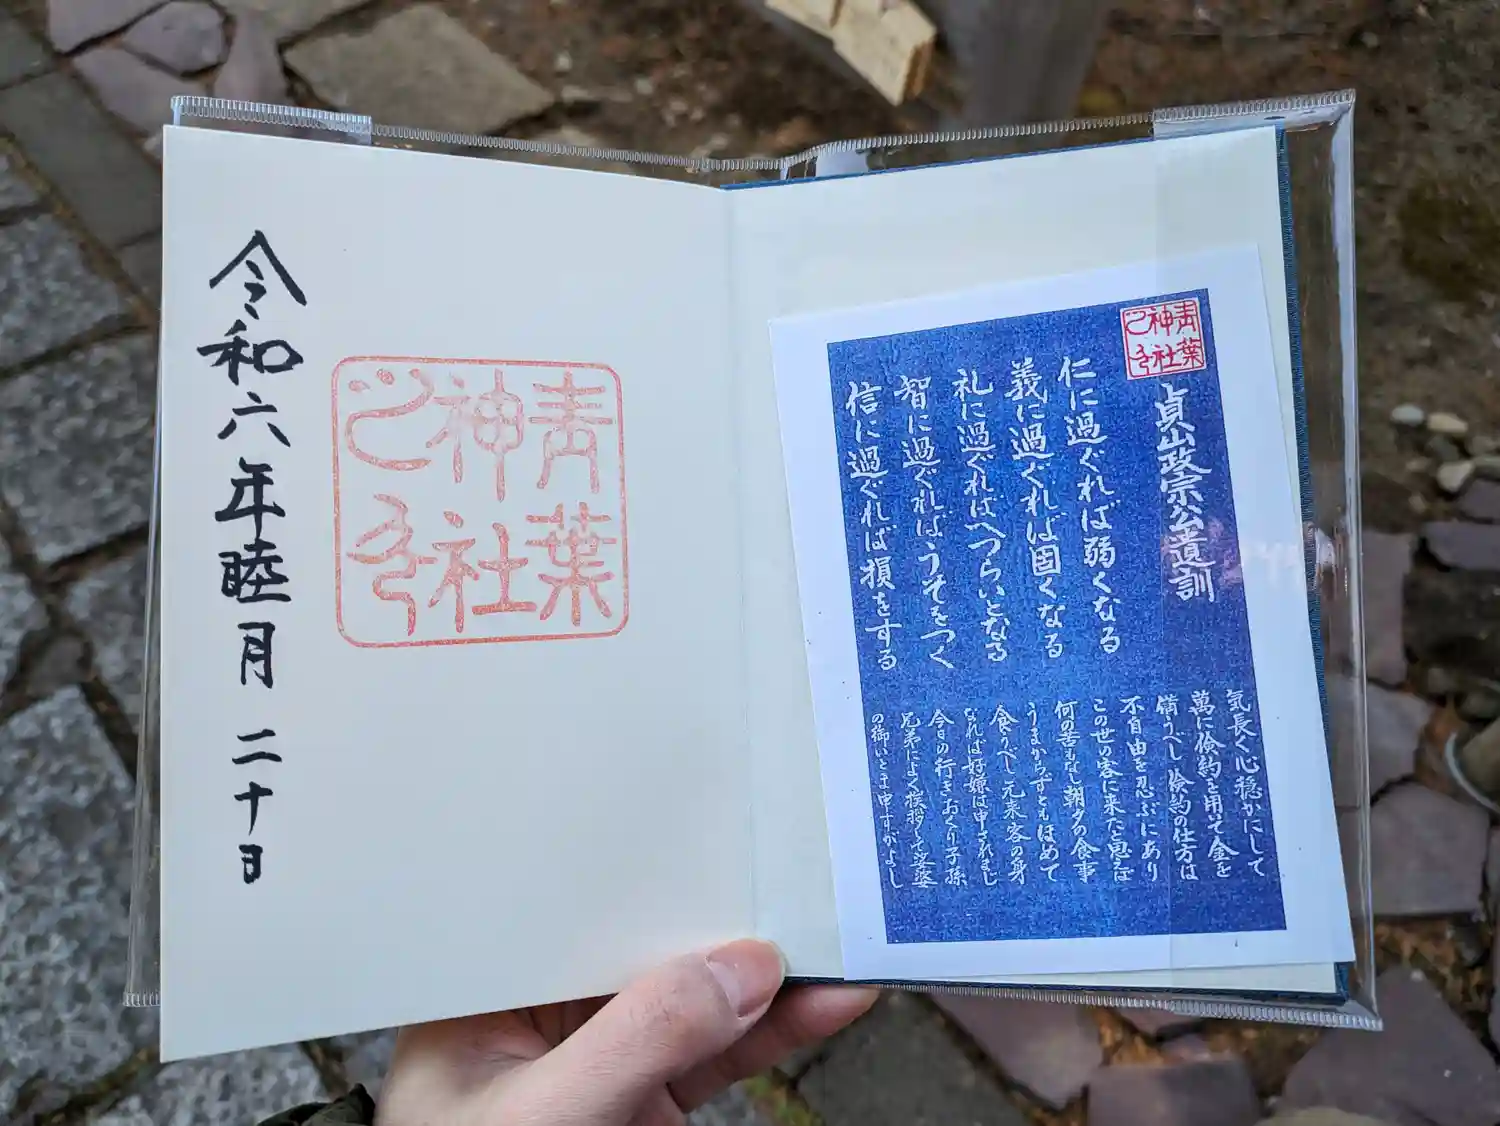 令和六年睦月 二十日
青葉
神社
之印
青葉
神社
之印
貞山政宗公遺訓
仁に過ぐれば弱くなる
義に過ぐれば固くなる
礼に過ぐればへつらいとなる
智に過ぐればうそをつく
信に過ぐれば損をする
気長く心穏かにして
萬に倹約を用いて金を
備うべし倹約の仕方は
不自由を忍ぶにあり
この世の客に来たと思えば
何の苦もなし朝夕の食事
うまからずともほめて
食うべし元来客の身
なれば好嫌は申されまじ
今日の行きおくり子孫
兄弟によく挨拶して娑婆
の御いとま申すがよし